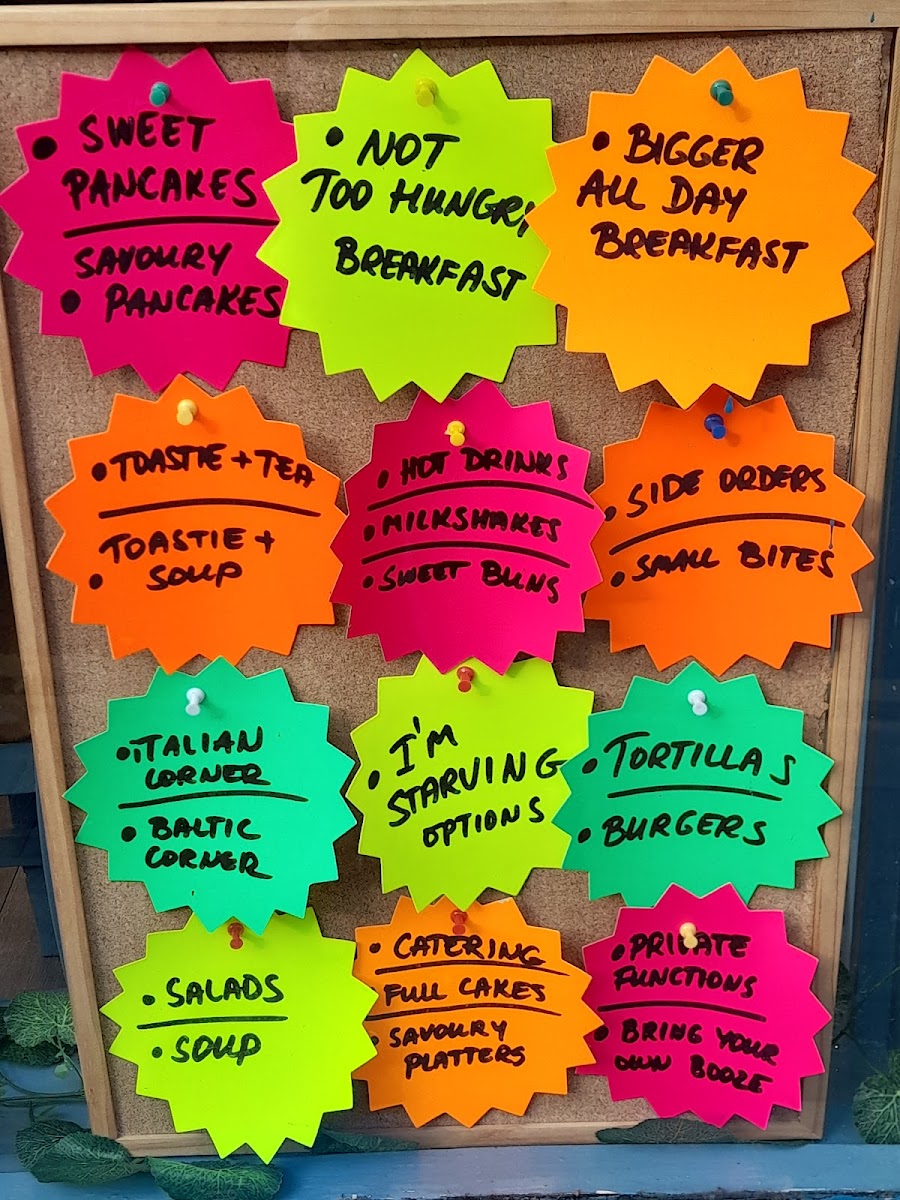 • SWEET
PANCAKES
SAVOURY
• PANCAKES
• NOT
TOO HUNGRY
BREAKFAST
• BIGGER
ALL DAY
BREAKFAST
• TOASTIE + TEA
TOASTIE +
• SOUP
• HOT DRINKS
• MILKSHAKES
• SWEET BUNS
• SIDE ORDERS
• SMALL BITES
• ITALIAN
CORNER
• BALTIC
CORNER
• I'M
STARVING
OPTIONS
• TORTILLAS
• BURGERS
• SALADS
• SOUP
• CATERING
FULL CAKES
• SAVOURY
PLATTERS
• PRIVATE
FUNCTIONS
• BRING YOUR
OWN BOOZE